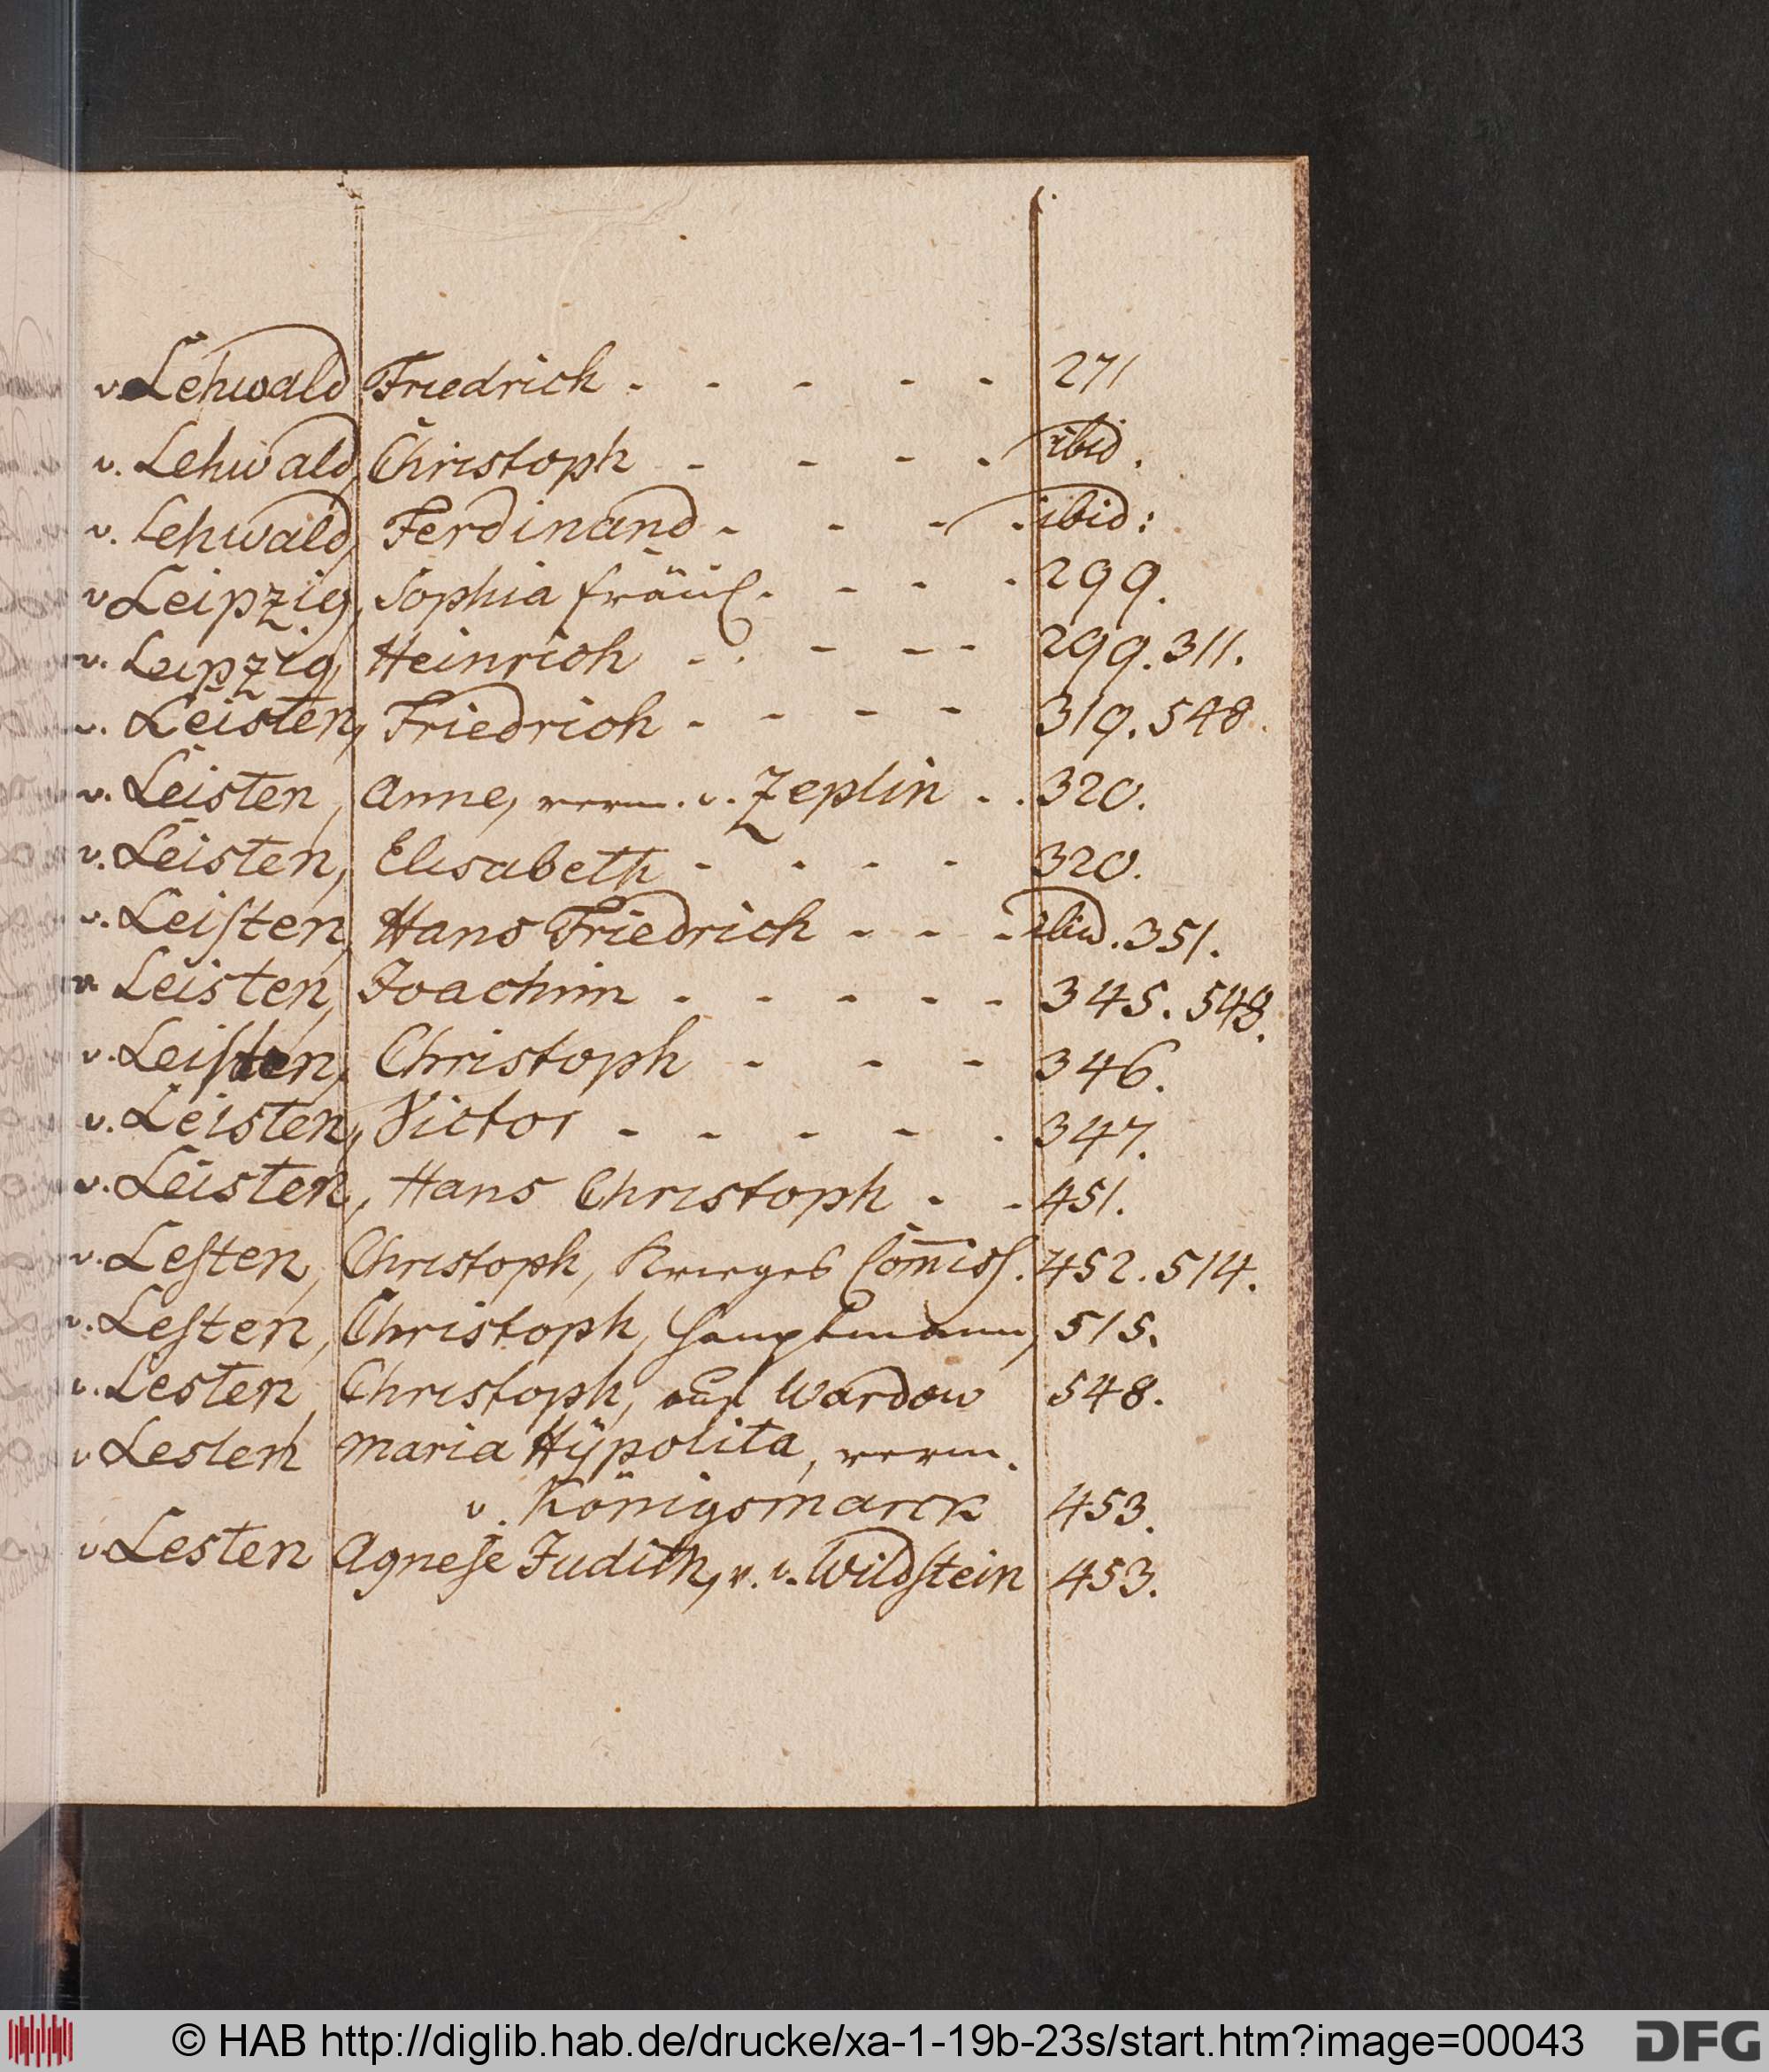 v. Lehwald Friedrich - - - - - 271
v. Lehwald, Christoph - - - - ibid.
v. Lehwald, Ferdinand - - - - ibid:
v Leipzig, Sophia fräul. - - - 299.
v. Leipzig, Heinrich - - - - - 299. 311.
v. Leisten, Friedrich - - - - 319. 548.
v. Leisten, Anne, verm. v. Zeplin - - 320.
v. Leisten, Elisabeth - - - - 320.
v. Leiſten, Hans Friedrich - - - ibid. 351.
v Leisten, Joachim - - - - - 345. 548.
v. Leiſten, Christoph - - - 346.
v. Leisten, Victor - - - - - 347.
v. Leisten, Hans Christoph - - 451.
v. Leſten, Christoph, Krieges Com̄iſſ. 452. 514.
v. Leſten, Christoph, Hauptmann, 515.
v. Lesten, Christoph, auf Wardow 548.
v Lesten Maria Hÿpolita, verm.
v. Königsmarck 453.
v. Lesten Agneſe Judith, v. v. Wildſtein 453.
© HAB http://diglib.hab.de/drucke/xa-1-19b-23s/start.htm?image=00043
DFG